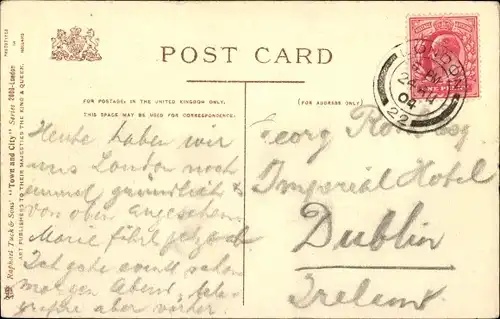 POST CARD
FOR POSTAGE IN THE UNITED KINGDOM ONLY.
THIS SPACE MAY BE USED FOR CORRESPONDENCE.
(FOR ADDRESS ONLY)
Heute haben wir
uns London noch
einmal gründlich
von oben angesehen
Marie fährt jetzt ab
Ich gehe eventl schon
morgen Abend,
aber vorher.
Georg
Imperial Hotel
Dublin
Ireland
ONE PENNY
04
22
Raphael Tuck & Sons' "Town and City" Series 2000-London
ART PUBLISHERS TO THEIR MAJESTIES THE KING & QUEEN.